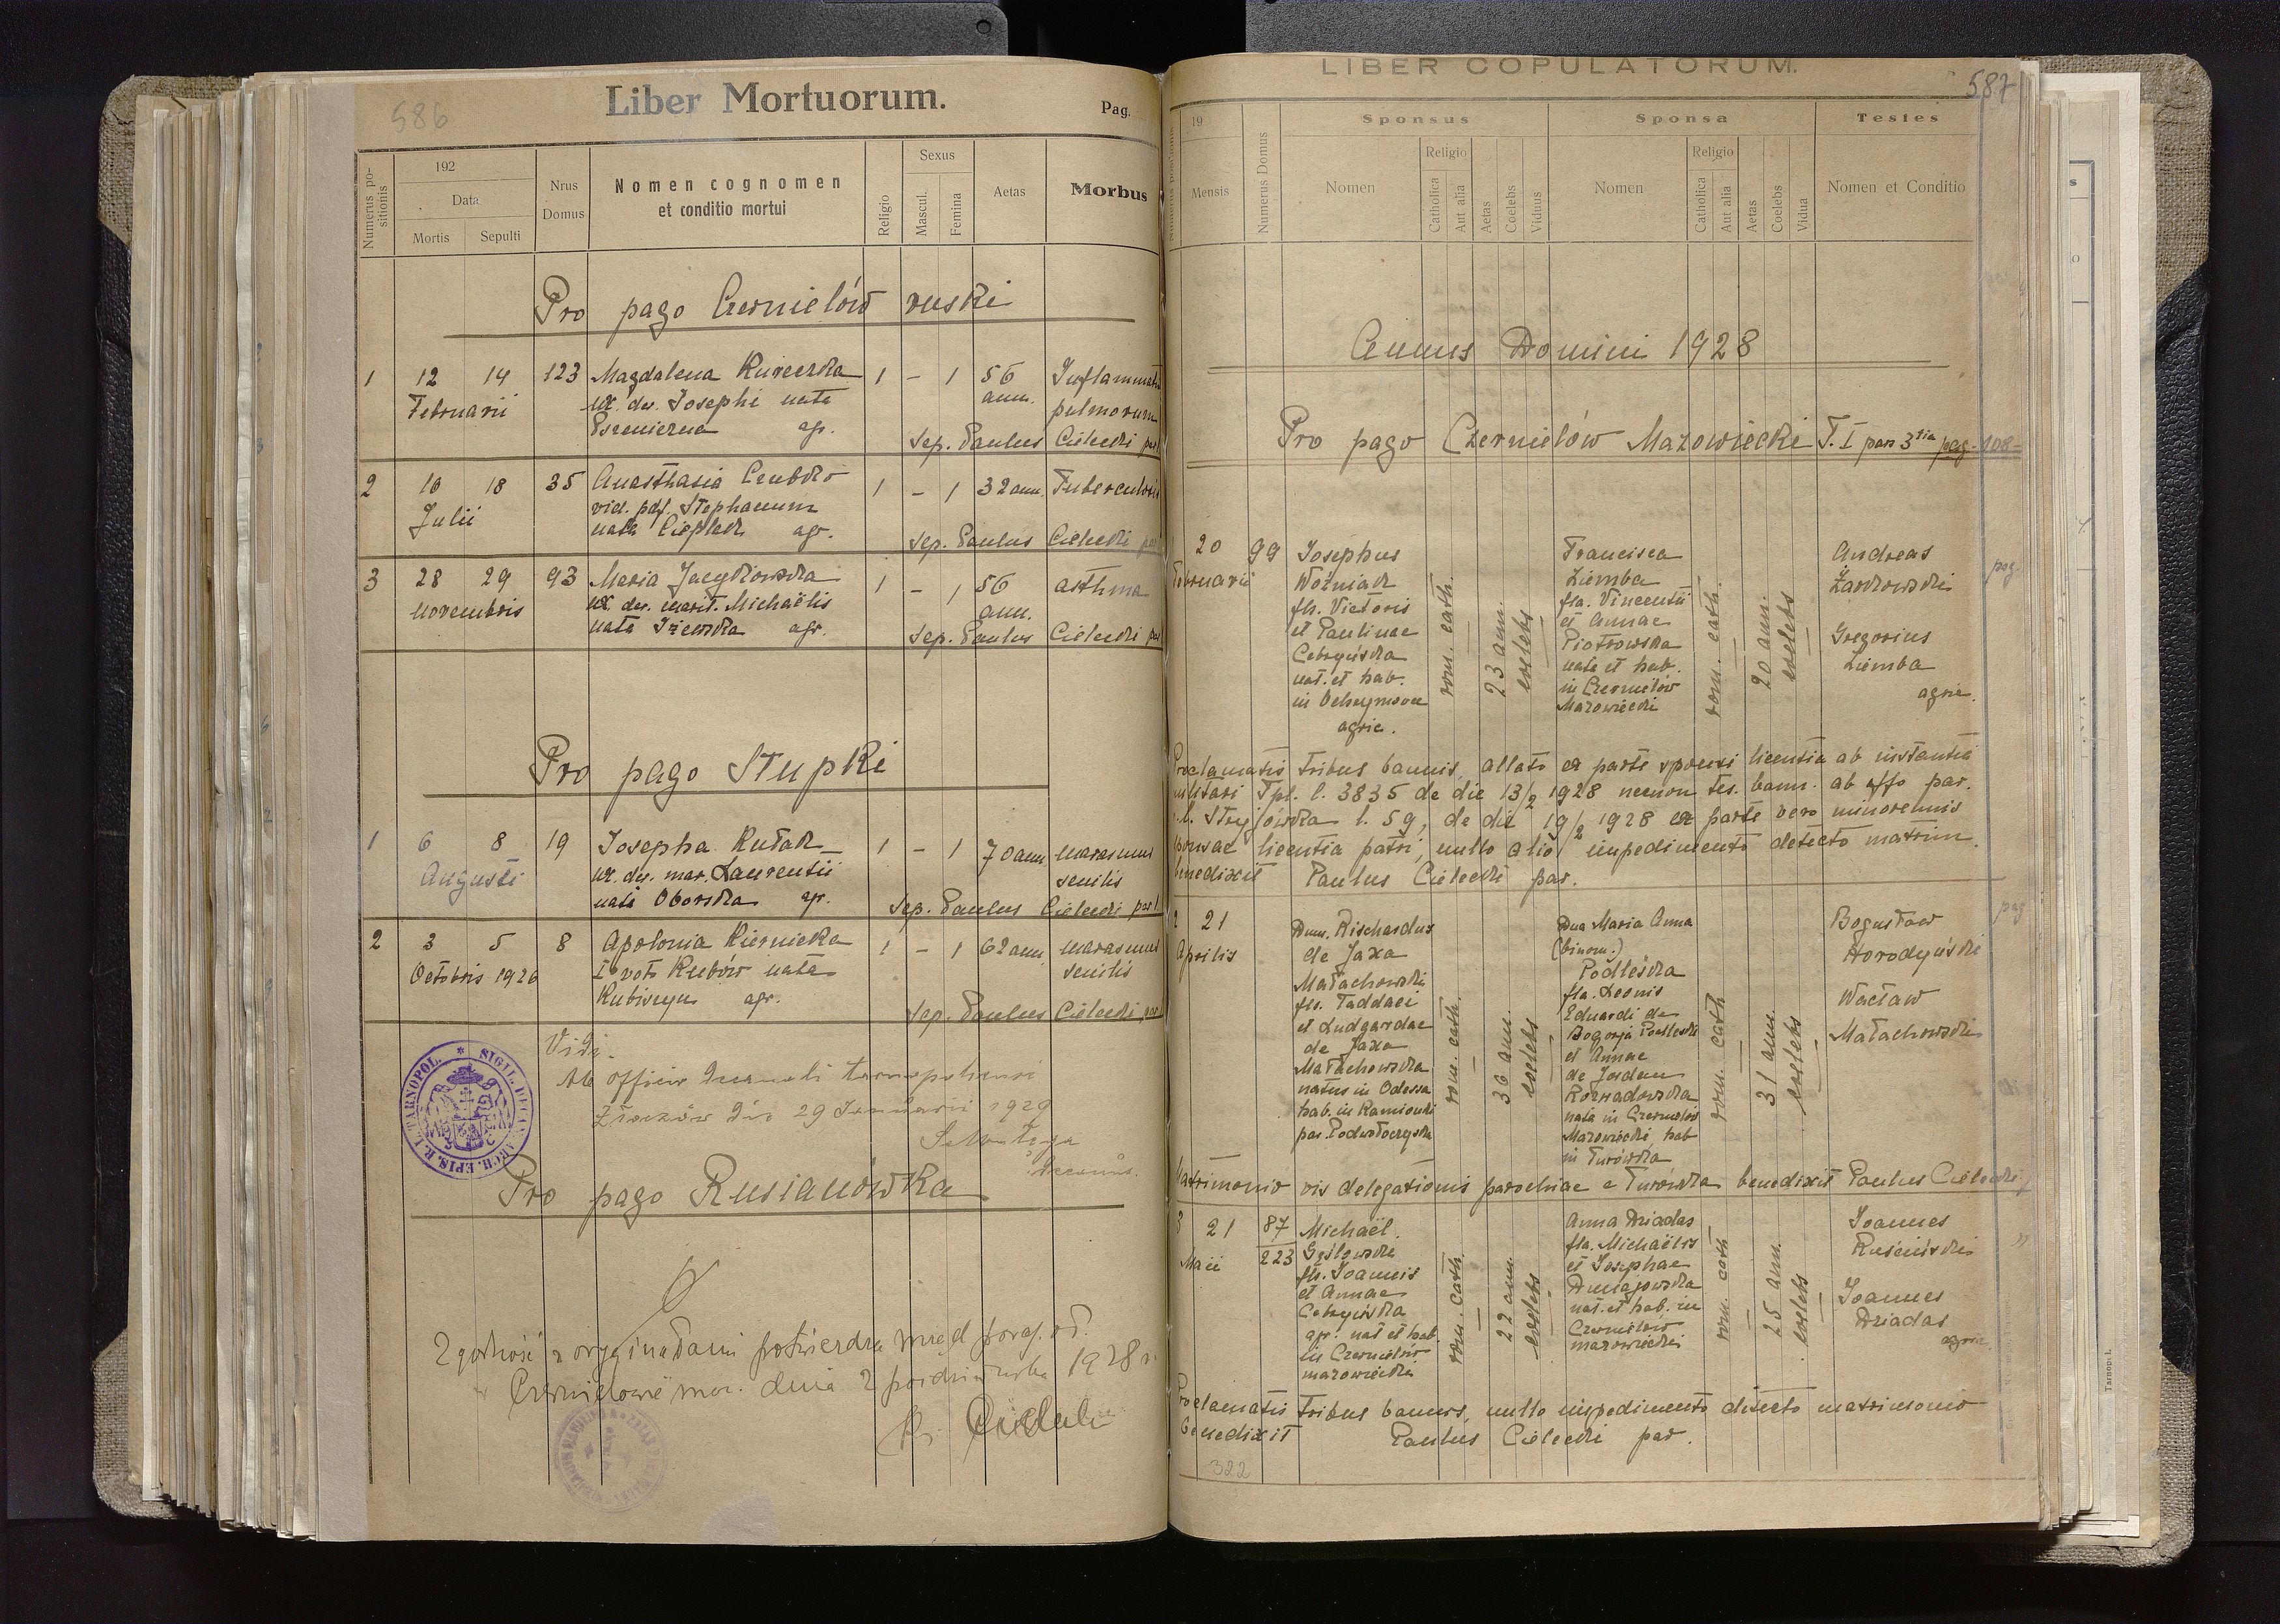 586
Liber Mortuorum.
Pag.
Numerus positionis
192
Data
Mortis
Sepulti
Nrus Domus
Nomen cognomen et conditio mortui
Religio
Sexus
Mascul.
Femina
Aetas
Morbus
Pro pago Czernielów ruski
1 12 14 123 Magdalena 1 – 1 56 Inflammatio
Februarii ux. der. Josephi nata ann. pulmorum
agr. Sep. Paulus Cielecki par
2 16 18 35 Anasthasia 1 – 1 32 ann. Tuberculosis
Julii vid. Stephanum
nata agr. Sep. Paulus Cielecki par
3 28 29 93 Maria Jacykowska 1 – 1 56 asthma
novembris ux. der. marit. Michaëlis ann.
nata agr. Sep. Paulus Cielecki par
Pro pago Stupki
1 6 8 19 Josepha Kułak 1 – 1 70 ann. marasmus
Augusti ux. der. mar. Laurentii senilis
nata Oborska agr. Sep. Paulus Cielecki par
2 3 5 8 Apolonia Kiernicka 1 – 1 62 ann. marasmus
Octobris 1926 I voto Kubów nata senilis
agr.
Sep. Paulus Cielecki par
Vidi.
Ab officio Decanali tarnopoliensi
die 29 Januarii 1929
decanus.
SIGIL. DECAN. ARCH. EPIS. R. L. TARNOPOL.
Pro pago Rusianówka
Zgodność z oryginałami potwierdza urząd paraf. ob.
w Czernielowie maz. dnia 2 października 1928 r.
Cielecki
LIBER COPULATORUM.
587
Numerus positionis
19
Mensis
Numerus Domus
Sponsus
Nomen
Religio
Catholica
Aut alia
Aetas
Coelebs
Viduus
Sponsa
Nomen
Religio
Catholica
Aut alia
Aetas
Coelebs
Vidua
Testes
Nomen et Conditio
Annus Domini 1928
Pro pago Czernielów Mazowiecki T. I pars 3tia pag. 108
20
Februarii
99
Josephus
Woźniak
fls. Victoris
et Paulinae
Cebryńska
nat. et hab.
in Ochrymowce
agric.
rom. cath.
23 ann.
coelebs
Francisca
Ziemba
fla. Vincentii
et Annae
Piotrowska
nata et hab.
in Czernielów
Mazowiecki
rom. cath.
20 ann.
coelebs
Andreas
Żarkowski
Gregorius
Ziemba
agric.
pag.
Proclamatis tribus bannis, allato ex parte sponsi licentia ab instantia
militari Tpl. l. 3835 de die 13/2 1928 necnon tes. bann. ab offo par.
r. l. Stryjówka l. 59, de die 19/2 1928 ex parte vero minorennis
sponsae licentia patri, nullo alio impedimento detecto matrim.
benedixit Paulus Cielecki par.
2 21
Aprilis
Dnus. Rischardus
de Jaxa
Małachowski
fls. Taddaei
et Ludgardae
de Jaxa
Małachowska
natus in Odessa
hab. in Kamionki
par. Podwołoczyska
rom. cath.
36 ann.
coelebs
Dna Maria Anna
(binom.)
Podleśka
fla. Leonis
Eduardi de
Bogorja Podleski
et Annae
de Jordan
Rozwadowska
nata in Czernielów
Mazowiecki hab
in Turówka
rom. cath
31 ann.
coelebs
Bogusław
Horodyński
Wacław
Małachowski
pag
Matrimonio vis delegationis parochiae a Turówka benedixit Paulus Cielecki
3 21
Maii
87
223
Michaël
fls. Joannis
et Annae
Cebryńska
agr. nat et hab.
in Czernielów
mazowiecki
rom. cath.
22 ann.
coelebs
Anna Driadas
fla. Michaëlis
et Josephae
Dunajowska
nat. et hab. in
Czernielów
mazowiecki
rom. cath
25 ann.
coelebs
Joannes
Rusiński
Joannes
Driadas
agric.
Proclamatis tribus bannis, nullo impedimento detecto matrimonio
benedixit Paulus Cielecki par.
322
Tarnopol.